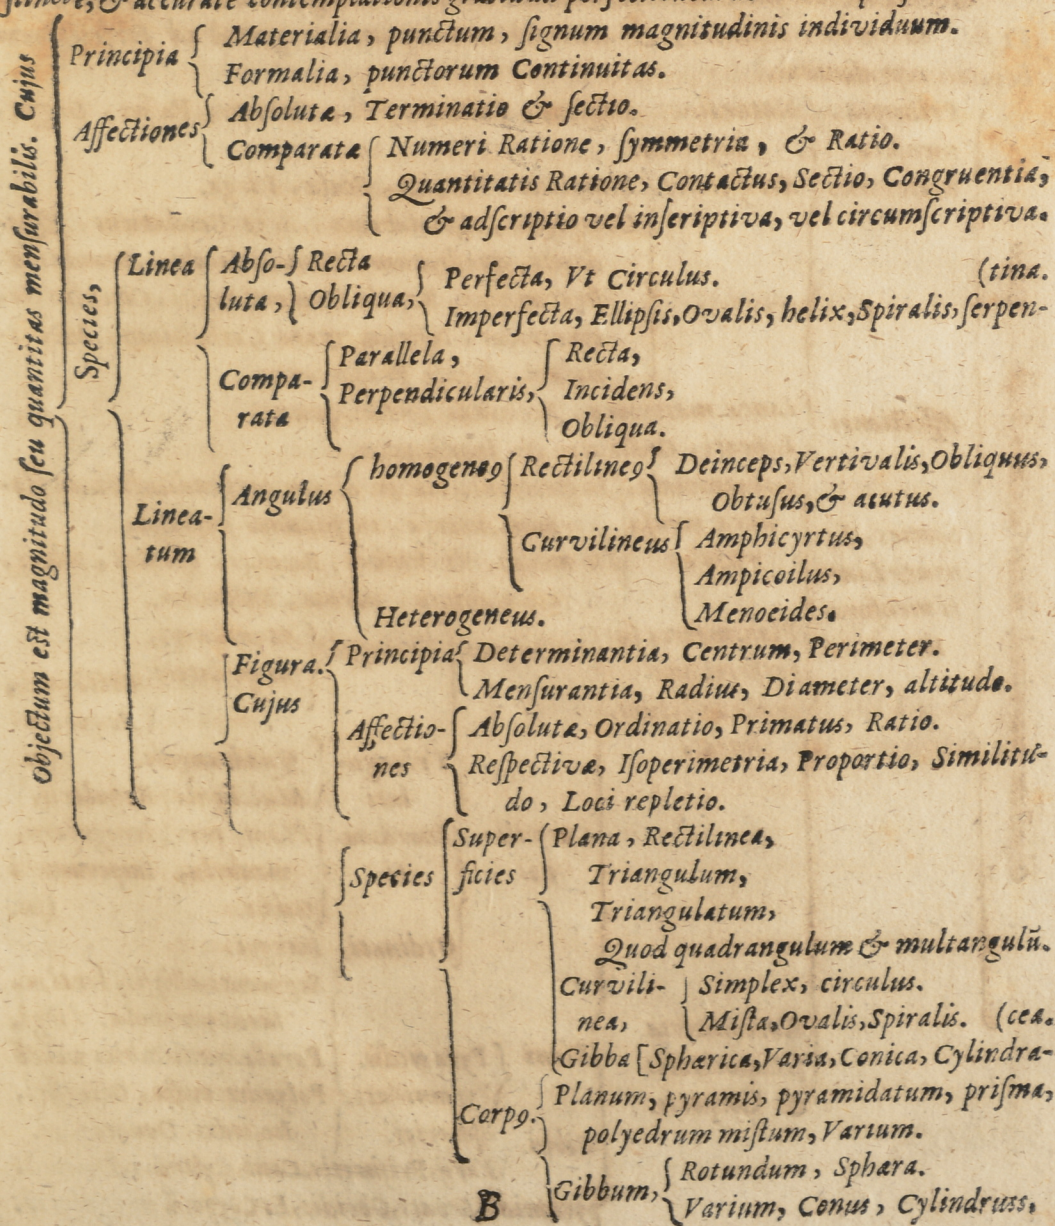 Objectum est magnitudo ſeu quantitas menſurabilis. Cujus
Principia
Materialia, punctum, ſignum magnitudinis individuum.
Formalia, punctorum Continuitas.
Affectiones
Abſolutæ, Terminatio & ſectio.
Comparatæ
Numeri Ratione, ſymmetria, & Ratio.
Quantitatis Ratione, Contactus, Sectio, Congruentia,
& adſcriptio vel inſcriptiva, vel circumſcriptiva.
Species,
Linea
Abſo-
luta,
Recta
Obliqua,
Perfecta, Vt Circulus. (tina.
Imperfecta, Ellipſis, Ovalis, helix, Spiralis, ſerpen-
Compa-
rata
Parallela,
Perpendicularis,
Recta,
Incidens,
Obliqua.
Linea-
tum
Angulus
homogeneꝰ
Rectilineꝰ
Deinceps, Vertivalis, Obliquus,
Obtuſus, & acutus.
Curvilineus
Amphicyrtus,
Ampicoilus,
Menoeides.
Heterogeneus.
Figura.
Cujus
Principia
Determinantia, Centrum, Perimeter.
Menſurantia, Radius, Diameter, altitudo.
Affectio-
nes
Abſolutæ, Ordinatio, Primatus, Ratio.
Reſpectivæ, Iſoperimetria, Proportio, Similitu-
do, Loci repletio.
Species
Super-
ficies
Plana, Rectilinea,
Triangulum,
Triangulatum,
Quod quadrangulum & multangulū.
Curvili-
nea,
Simplex, circulus.
Miſta, Ovalis, Spiralis. (cea.
Gibba [Sphærica, Varia, Conica, Cylindra-
Corpꝰ.
Planum, pyramis, pyramidatum, priſma,
polyedrum miſtum, Varium.
Gibbum,
Rotundum, Sphæra.
Varium, Conus, Cylindruss.
B